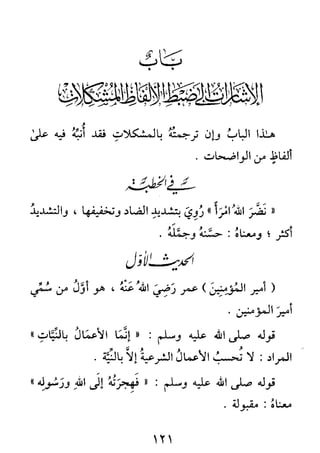 بَابُ
الإِشَارَاتِ إِلَى ضَبْطِ الأَلْفَاظِ المُشْكِلَاتِ
هـٰذا البابُ وإن ترجمتُهُ بالمشكلاتِ فقد أُنبِّهُ فيه علىٰ
ألفاظٍ من الواضحات .
في الخطبة
« نَضَّرَ اللهُ امْرَأً » رُوِيَ بتشديدِ الضاد وتخفيفها ، والتشديدُ
أكثر ؛ ومعناهُ : حسَّنهُ وجمَّلَهُ .
الحديث الأول
( أمير المُؤمِنِينَ ) عمر رَضِيَ اللهُ عَنْهُ ، هو أوَّلُ من سُمِّي
أميرَ المؤمنين .
قوله صلى الله عليه وسلم : « إنَّمَا الأعمَالُ بالنِّيَّاتِ »
المراد : لا تُحسبُ الأعمالُ الشرعيةُ إلاَّ بالنِّيَّة .
قوله صلى الله عليه وسلم : « فَهِجرَتُهُ إلَى اللهِ ورَسُولِهِ »
معناهُ : مقبولة .
١٢١